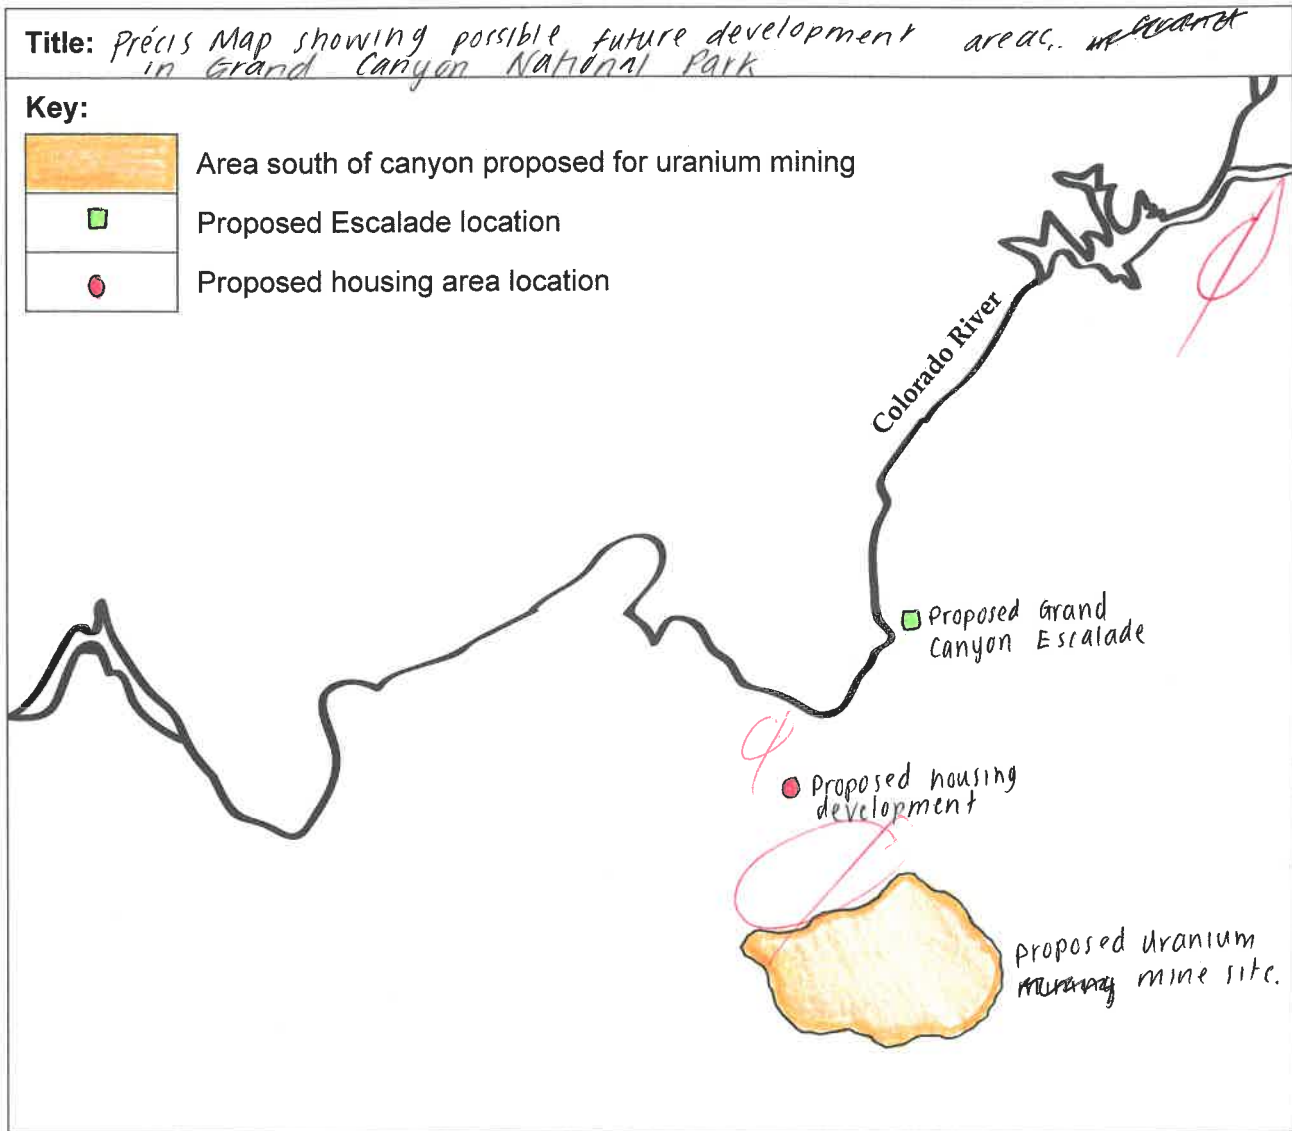 Title: Précis Map showing possible future development areas.
in Grand Canyon National Park
Key:
Area south of canyon proposed for uranium mining
Proposed Escalade location
Proposed housing area location
Colorado River
Proposed Grand
Canyon Escalade
Proposed housing
development
proposed Uranium
mine site.